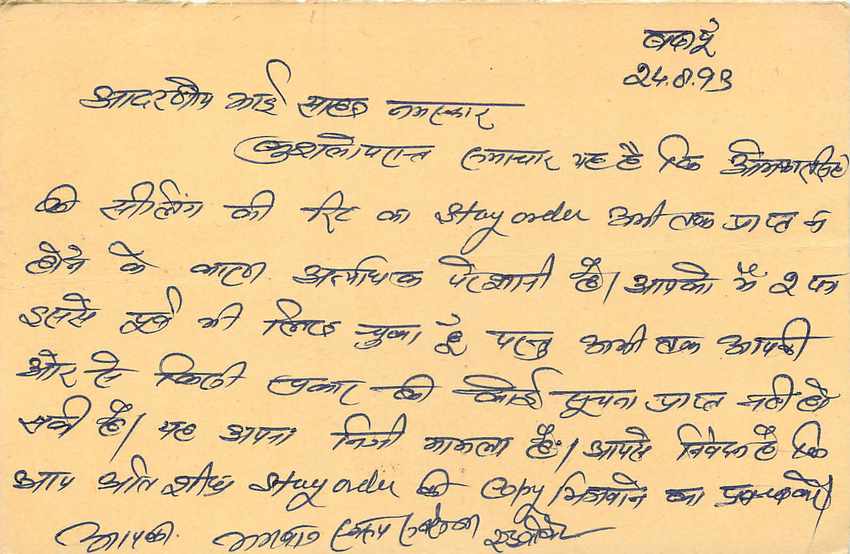 24.8.93
आदरणीय भाई साहब नमस्कार
कुशलोपरान्त समाचार यह है कि
की सीलिंग की रिट का Stay order अभी तक प्राप्त न
होने के कारण अत्यधिक परेशानी है। आपको मैं २ पत्र
इससे पूर्व भी लिख चुका हूँ परन्तु अभी तक आपकी
ओर से किसी प्रकार की कोई सूचना प्राप्त नहीं हो
सकी है। यह अपना निजी मामला है। आपसे निवेदन है कि
आप अति शीघ्र Stay order की Copy भिजवाने का प्रबन्ध करें।
आपका भगवान स्वरूप